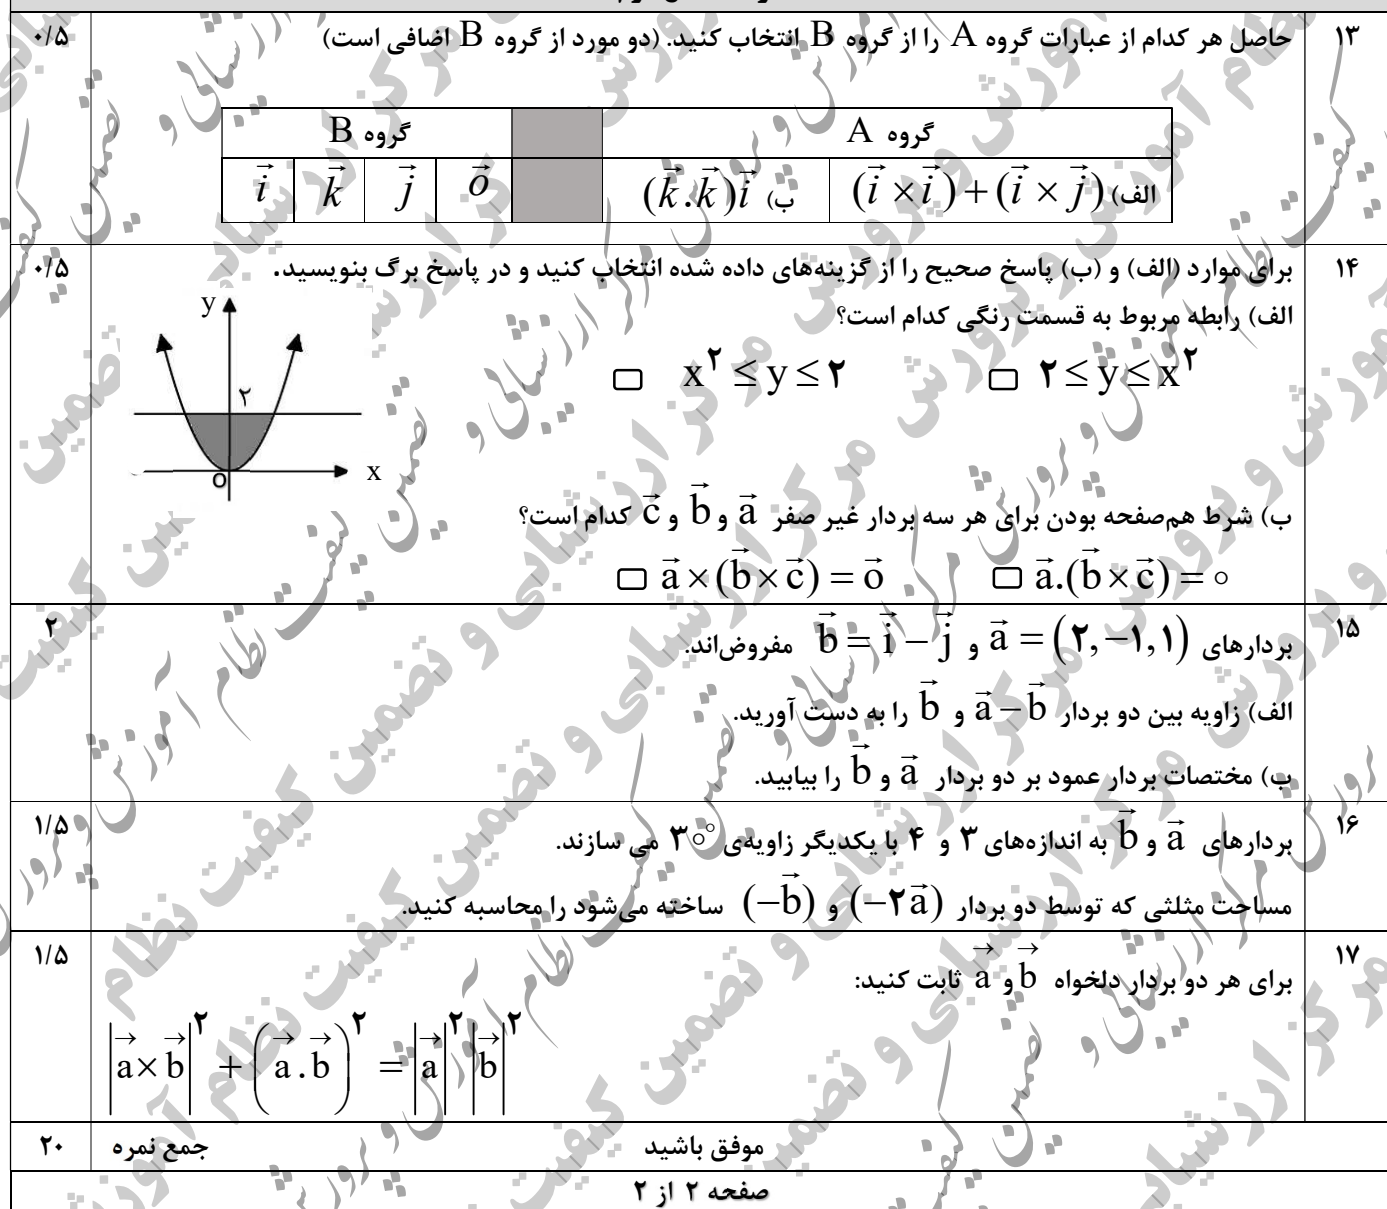 ۱۳ حاصل هر کدام از عبارات گروه A را از گروه B انتخاب کنید. (دو مورد از گروه B اضافی است) ۰/۵
گروه A گروه B
الف) (i⃗ × i⃗) + (i⃗ × j⃗) ب) (k⃗ . k⃗) i⃗ o⃗ j⃗ k⃗ i⃗
۱۴ برای موارد (الف) و (ب) پاسخ صحیح را از گزینه‌های داده شده انتخاب کنید و در پاسخ برگ بنویسید. ۰/۵
الف) رابطه مربوط به قسمت رنگی کدام است؟
▭ ۲ ≤ y ≤ x^۲ ▭ x^۲ ≤ y ≤ ۲
y
۲
x
o
ب) شرط هم‌صفحه بودن برای هر سه بردار غیر صفر a⃗ و b⃗ و c⃗ کدام است؟
▭ a⃗ . (b⃗ × c⃗) = ۰ ▭ a⃗ × (b⃗ × c⃗) = o⃗
۱۵ بردارهای a⃗ = (۲, −۱, ۱) و b⃗ = i⃗ − j⃗ مفروض‌اند. ۲
الف) زاویه بین دو بردار a⃗ − b⃗ و b⃗ را به دست آورید.
ب) مختصات بردار عمود بر دو بردار a⃗ و b⃗ را بیابید.
۱۶ بردارهای a⃗ و b⃗ به اندازه‌های ۳ و ۴ با یکدیگر زاویه‌ی ۳۰° می سازند. ۱/۵
مساحت مثلثی که توسط دو بردار (−۲a⃗) و (−b⃗) ساخته می‌شود را محاسبه کنید.
۱۷ برای هر دو بردار دلخواه b⃗ و a⃗ ثابت کنید: ۱/۵
|a⃗ × b⃗|^۲ + (a⃗ . b⃗)^۲ = |a⃗|^۲ |b⃗|^۲
موفق باشید جمع نمره ۲۰
صفحه ۲ از ۲
مرکز ارزشیابی و تضمین کیفیت نظام آموزش و پرورش